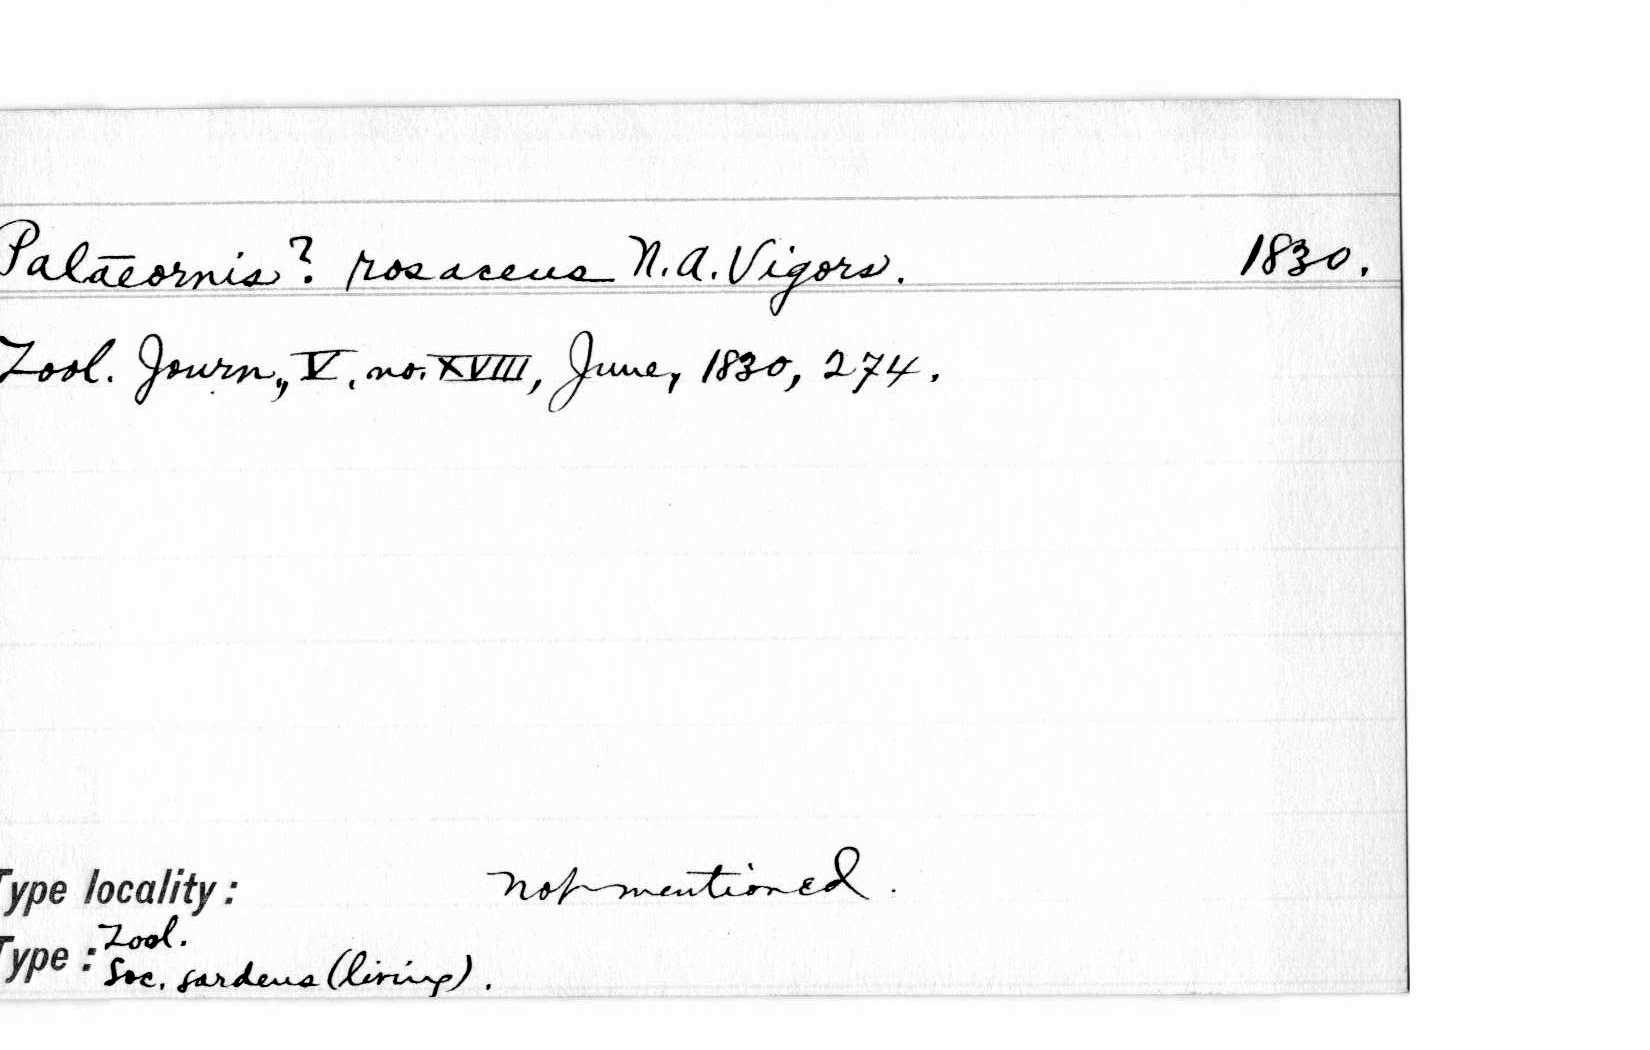 Palaeornis? rosaceus N.A. Vigors. 1830.
Zool. Journ., V, no. XVIII, June, 1830, 274.
Type locality: not mentioned.
Type: Zool.
Soc. gardens (living).